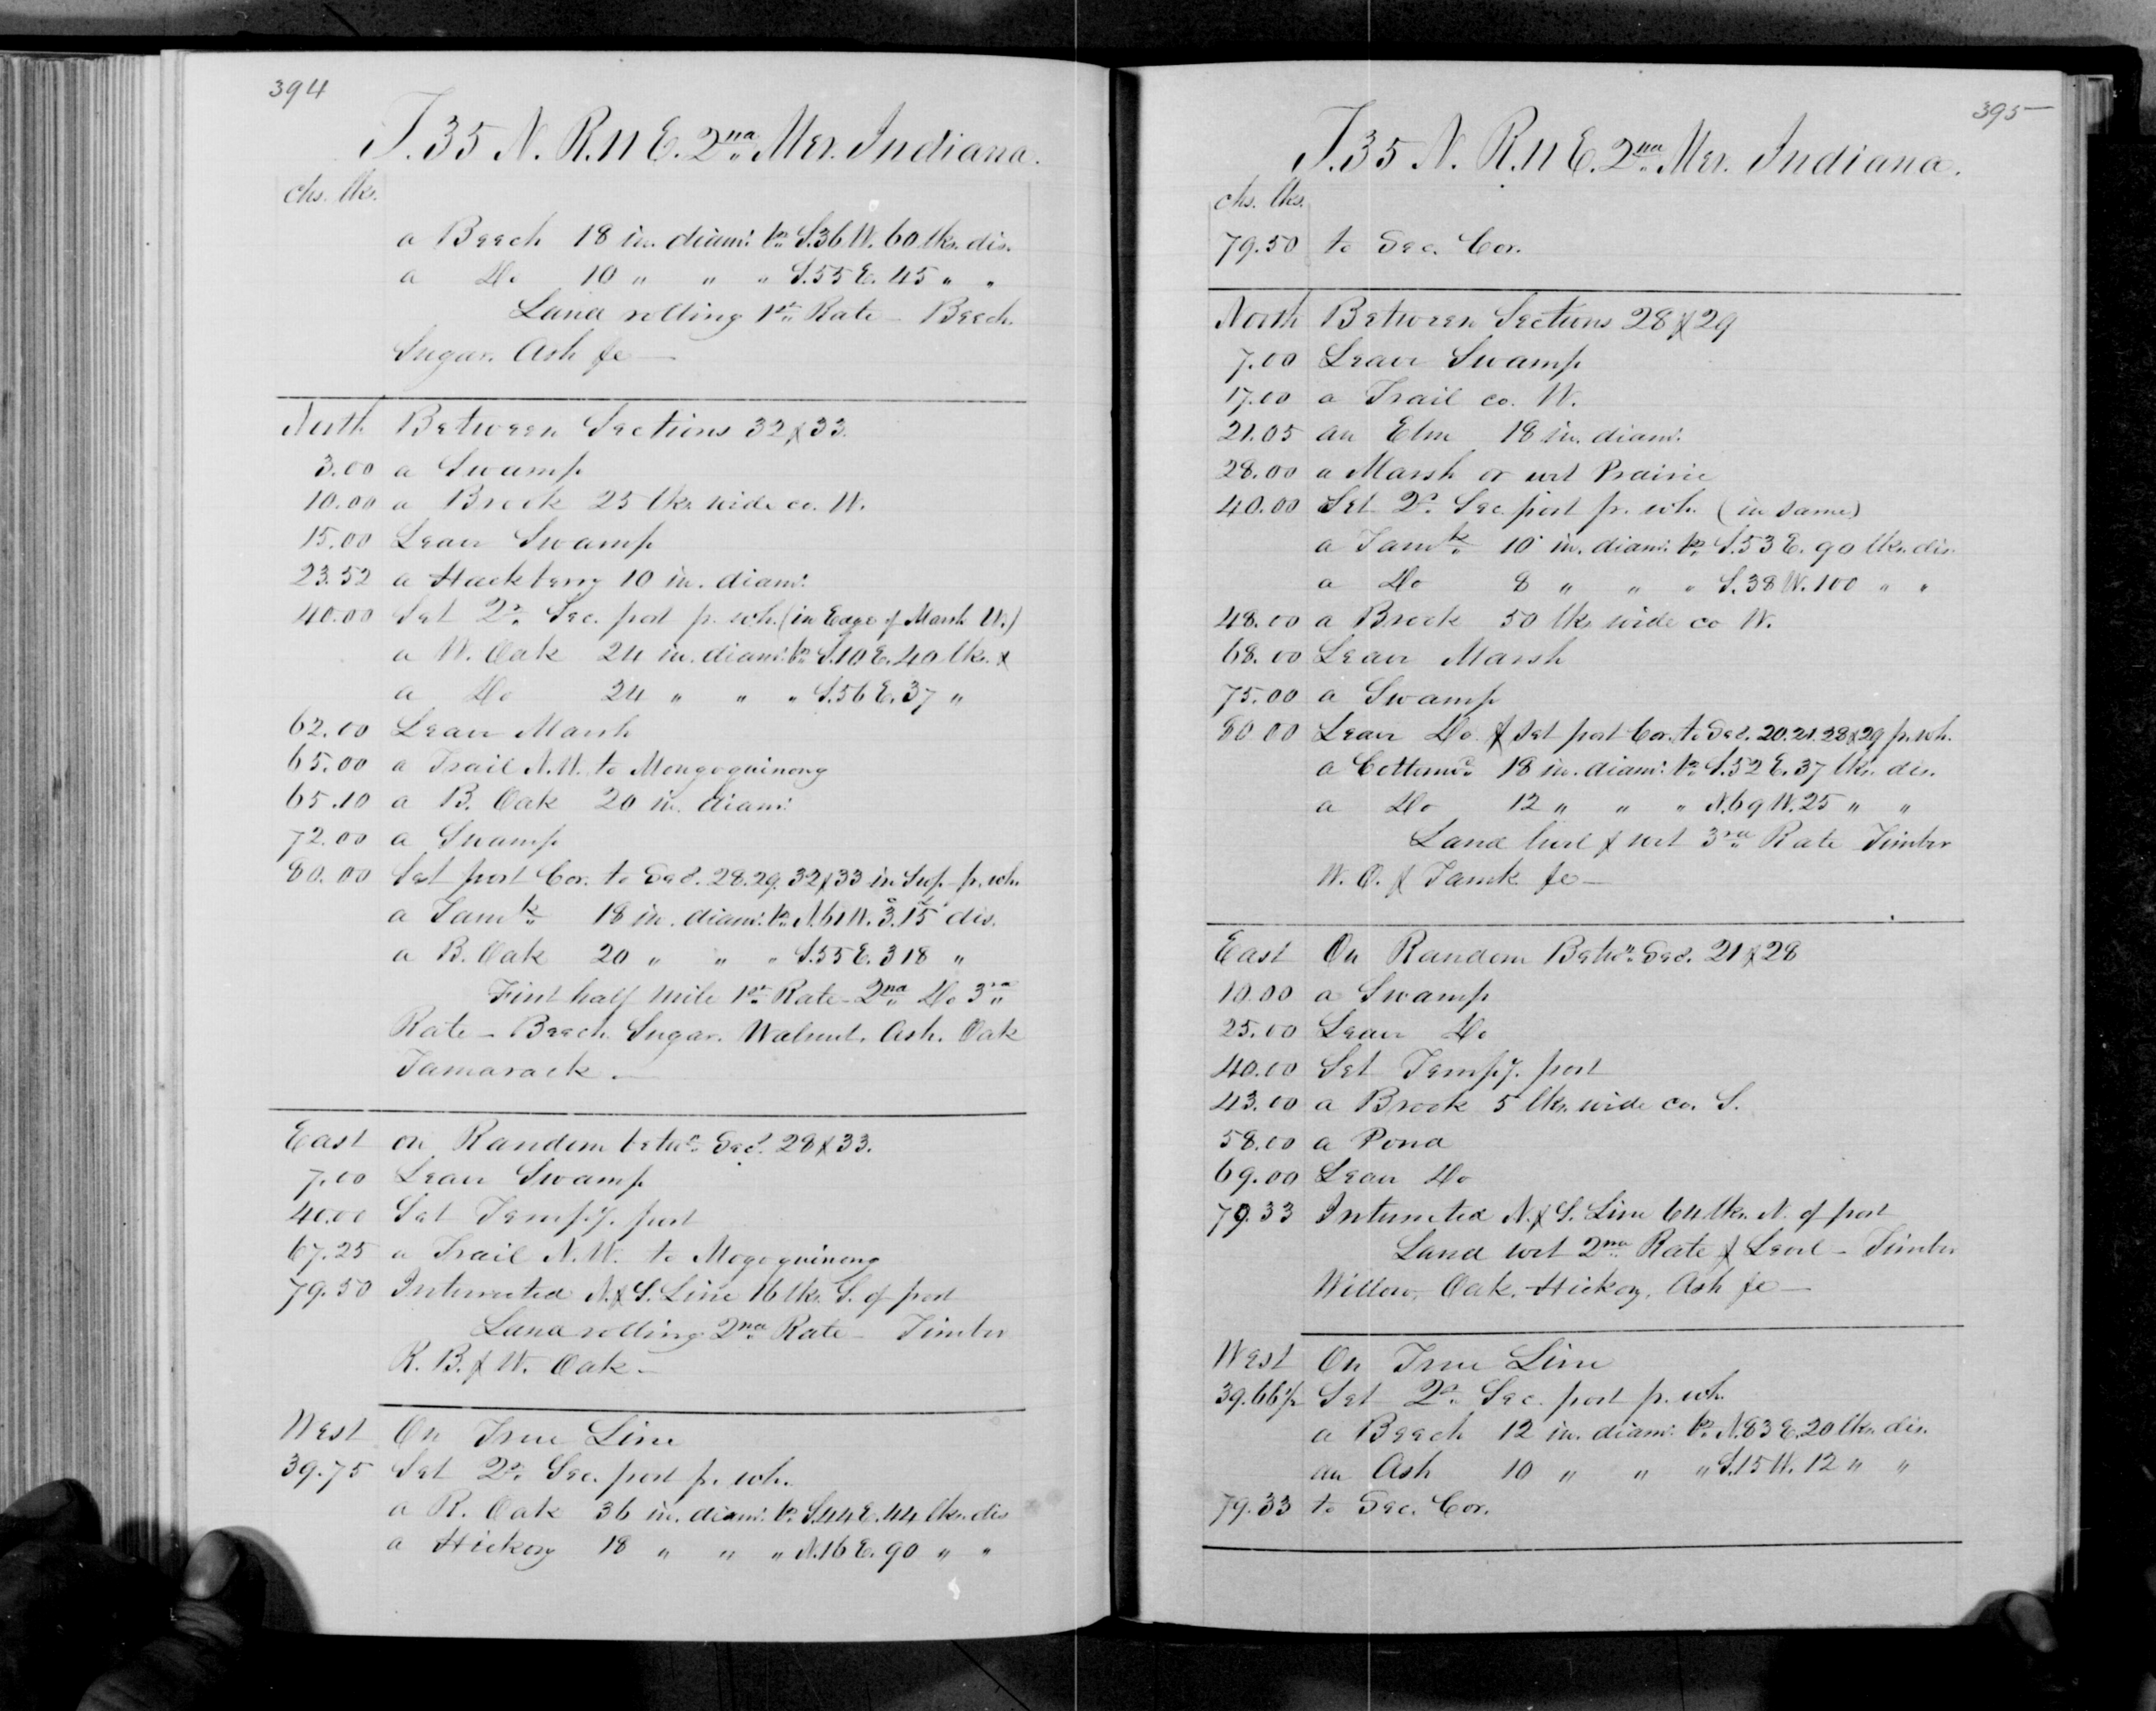 394
T. 35 N. R. 11 E. 2nd Mer. Indiana.
chs. lks.
a Beech 18 in. diam: br. S. 36 W. 60 lks. dis.
a Do 10 " " " S. 55 E. 45 " "
Land rolling 1st Rate – Beech.
Sugar. Ash &c —
North Between Sections 32 & 33.
3.00 a Swamp
10.00 a Brook 25 lks. wide co. W.
15.00 Leave Swamp
23.52 a Hackberry 10 in. diam:
40.00 Set Qr. Sec. post pr. wh. (in Edge of Marsh W.)
a W. Oak 24 in. diam: br. S. 10 E. 40 lks. &
a Do 24 " " " S. 56 E. 37 "
62.00 Leave Marsh
65.00 a Trail N.W. to Mongoquinong
65.10 a B. Oak 20 in. diam:
72.00 a Swamp
80.00 Set post Cor. to Secs. 28. 29. 32 & 33 in Swp. pr. wh.
a Tamk. 18 in. diam: br. N. 61 W. 3.15 dis.
a B. Oak 20 " " " S. 55 E. 318 "
First half mile 1st Rate – 2nd Do 3rd
Rate – Beech. Sugar. Walnut. Ash. Oak
Tamarack. —
East on Random betwn. Secs. 28 & 33.
7.00 Leave Swamp
40.00 Set Tempy. post
67.25 a Trail N.W. to Mogoquinong
79.50 Intersected N. & S. Line 16 lks. S. of post
Land rolling 2nd Rate – Timber
R. B. & W. Oak –
West On True Line
39.75 Set Qr. Sec. post pr. wh.
a R. Oak 36 in. diam: br. S. 44 E. 44 lks. dis
a Hickory 18 " " " N. 16 E. 90 " "
395
T. 35 N. R. 11 E. 2nd Mer. Indiana.
chs. lks.
79.50 to Sec. Cor.
North Between Sections 28 & 29
7.00 Leave Swamp
17.00 a Trail co. W.
21.05 an Elm 18 in. diam:
28.00 a Marsh or wet Prairie
40.00 Set Qr. Sec. post pr. wh. (in same)
a Tamk. 10 in. diam: br. S. 53 E. 90 lks. dis.
a Do 8 " " " S. 38 W. 100 " "
48.00 a Brook 50 lks. wide co W.
68.00 Leave Marsh
75.00 a Swamp
80.00 Leave Do & set post Cor. to Secs. 20. 21. 28 & 29 pr. wh.
a Cottonwd. 18 in. diam: br. S. 52 E. 37 lks. dis.
a Do 12 " " " N. 69 W. 25 " "
Land level & wet 3rd Rate Timber
W. O. & Tamk &c —
East On Random Betwn. Secs. 21 & 28
10.00 a Swamp
25.00 Leave Do
40.00 Set Tempy. post
43.00 a Brook 5 lks. wide co. S.
58.00 a Pond
69.00 Leave Do
79.33 Intersected N. & S. Line 64 lks. N. of post
Land wet 2nd Rate & Level – Timber
Willow, Oak, Hickory, Ash &c —
West On True Line
39.66½ Set Qr. Sec. post pr. wh.
a Beech 12 in. diam: br. N. 83 E. 20 lks. dis.
an Ash 10 " " " S. 15 W. 12 " "
79.33 to Sec. Cor.